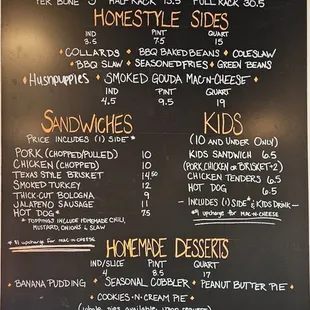 PER BONE 3 HALF RACK 15.5 FULL RACK 30.5
HOMESTYLE SIDES
IND PINT QUART
3.5 7.5 15
COLLARDS BBQ BAKED BEANS COLESLAW
BBQ SLAW SEASONED FRIES GREEN BEANS
HUSHPUPPIES SMOKED GOUDA MAC-N-CHEESE
IND PINT QUART
4.5 9.5 19
SANDWICHES
PRICE INCLUDES (1) SIDE*
PORK (CHOPPED/PULLED) 10
CHICKEN (CHOPPED) 10
TEXAS STYLE BRISKET 14.50
SMOKED TURKEY 12
THICK-CUT BOLOGNA 9
JALAPENO SAUSAGE 11
HOT DOG* 7.5
* TOPPINGS INCLUDE HOMEMADE CHILI,
MUSTARD, ONIONS & SLAW
*$1 UPCHARGE FOR MAC-N-CHEESE
KIDS
(10 AND UNDER ONLY)
KIDS SANDWICH 6.5
(PORK, CHICKEN OR BRISKET+2)
CHICKEN TENDERS 6.5
HOT DOG 6.5
- INCLUDES (1) SIDE* & KIDS DRINK -
*$1 UPCHARGE FOR MAC-N-CHEESE
HOMEMADE DESSERTS
IND/SLICE PINT QUART
4 8.5 17
BANANA PUDDING SEASONAL COBBLER PEANUT BUTTER PIE
COOKIES-N-CREAM PIE
(whole pies available upon request)